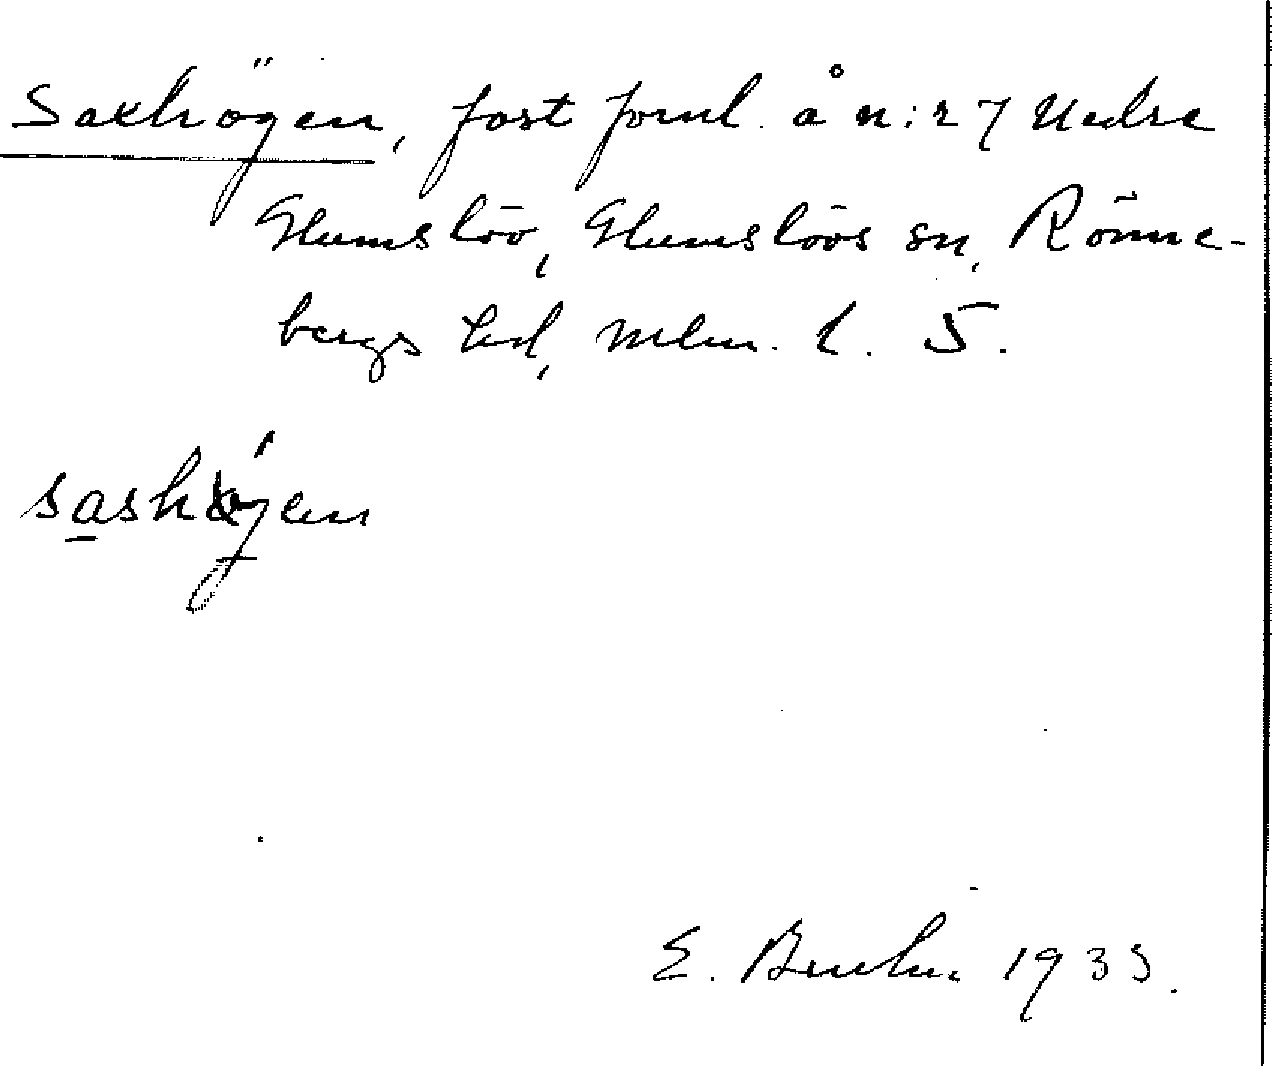 Saxhögen, fast fornl. å n:r 7 Nedre
Glumslöv, Glumslövs sn, Rönne-
bergs hd, Mlm. l. S.
sashøgen
E. Bruhn. 1935.